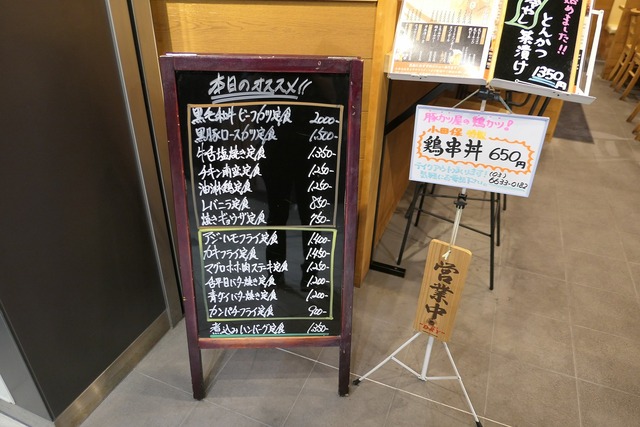 本日のオススメ!!
黒毛和牛ビーフカツ定食 2000-
黒豚ロースカツ定食 1,500-
牛舌塩焼き定食 1,350-
チキン南蛮定食 1,250-
油淋鶏定食 1,250-
レバニラ定食 850-
焼きギョウザ定食 750-
アジ・ハモフライ定食 1,400-
カキフライ定食 1,450-
マグロホホ肉ステーキ定食 1,250-
舌平目バター焼き定食 1,200-
青ダイバター焼き定食 1,200-
カンパチフライ定食 900-
煮込みハンバーグ定食 1,350-
めました!!
冷やし
とんかつ
茶漬け
1350円
豚カツ屋の鶏カツ?
小田保
鶏串丼 650円
テイクアウトもあります!
(03)
6633-0182
営業中